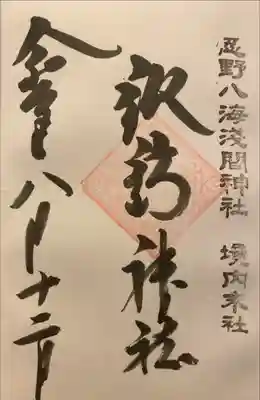 忍野八海淺間神社 境内末社
諏訪神社
八月十二日